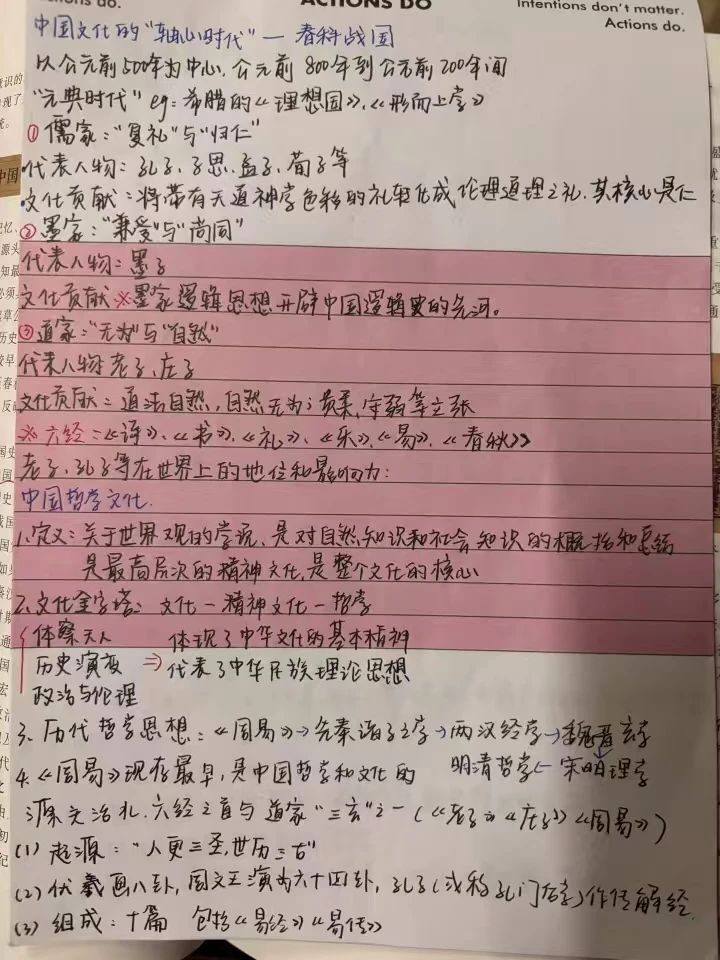 ns do.
ACTIONS DO
Intentions don't matter.
Actions do.
中国文化的"轴心时代"— 春秋战国
以公元前500年为中心,公元前 800年到公元前200年间
"元典时代" eg:希腊的《理想国》、《形而上学》
① 儒家:"复礼"与"归仁"
·代表人物:孔子、子思、孟子、荀子等
·文化贡献:将带有天道神学色彩的礼转化成伦理道理之礼,其核心是仁
② 墨家:"兼爱"与"尚同"
代表人物:墨子
文化贡献※墨家逻辑思想开辟中国逻辑史的先河。
③道家:"无为"与"自然"
代表人物 老子、庄子
文化贡献:道法自然,自然无为;贵柔,守弱等主张
※ 六经:《诗》、《书》、《礼》、《乐》、《易》、《春秋》
老子、孔子等在世界上的地位和影响力:
中国哲学文化.
1.定义:关于世界观的学说,是对自然知识和社会知识的概括和总结
是最高层次的精神文化,是整个文化的核心
2.文化金字塔:文化—精神文化—哲学
体察天人 体现了中华文化的基本精神
历史演变 ⇒ 代表了中华民族理论思想
政治与伦理
3.历代哲学思想:《周易》→先秦诸子之学→两汉经学→魏晋玄学
4.《周易》现存最早,是中国哲学和文化的 明清哲学←宋明理学
源头活水.六经之首与道家"三玄"之一(《老子》《庄子》《周易》)
(1) 起源:"人更三圣,世历三古"
(2) 伏羲画八卦,周文王演为六十四卦,孔子(或称孔门后学)作传解经.
(3) 组成:十篇 包括《易经》《易传》